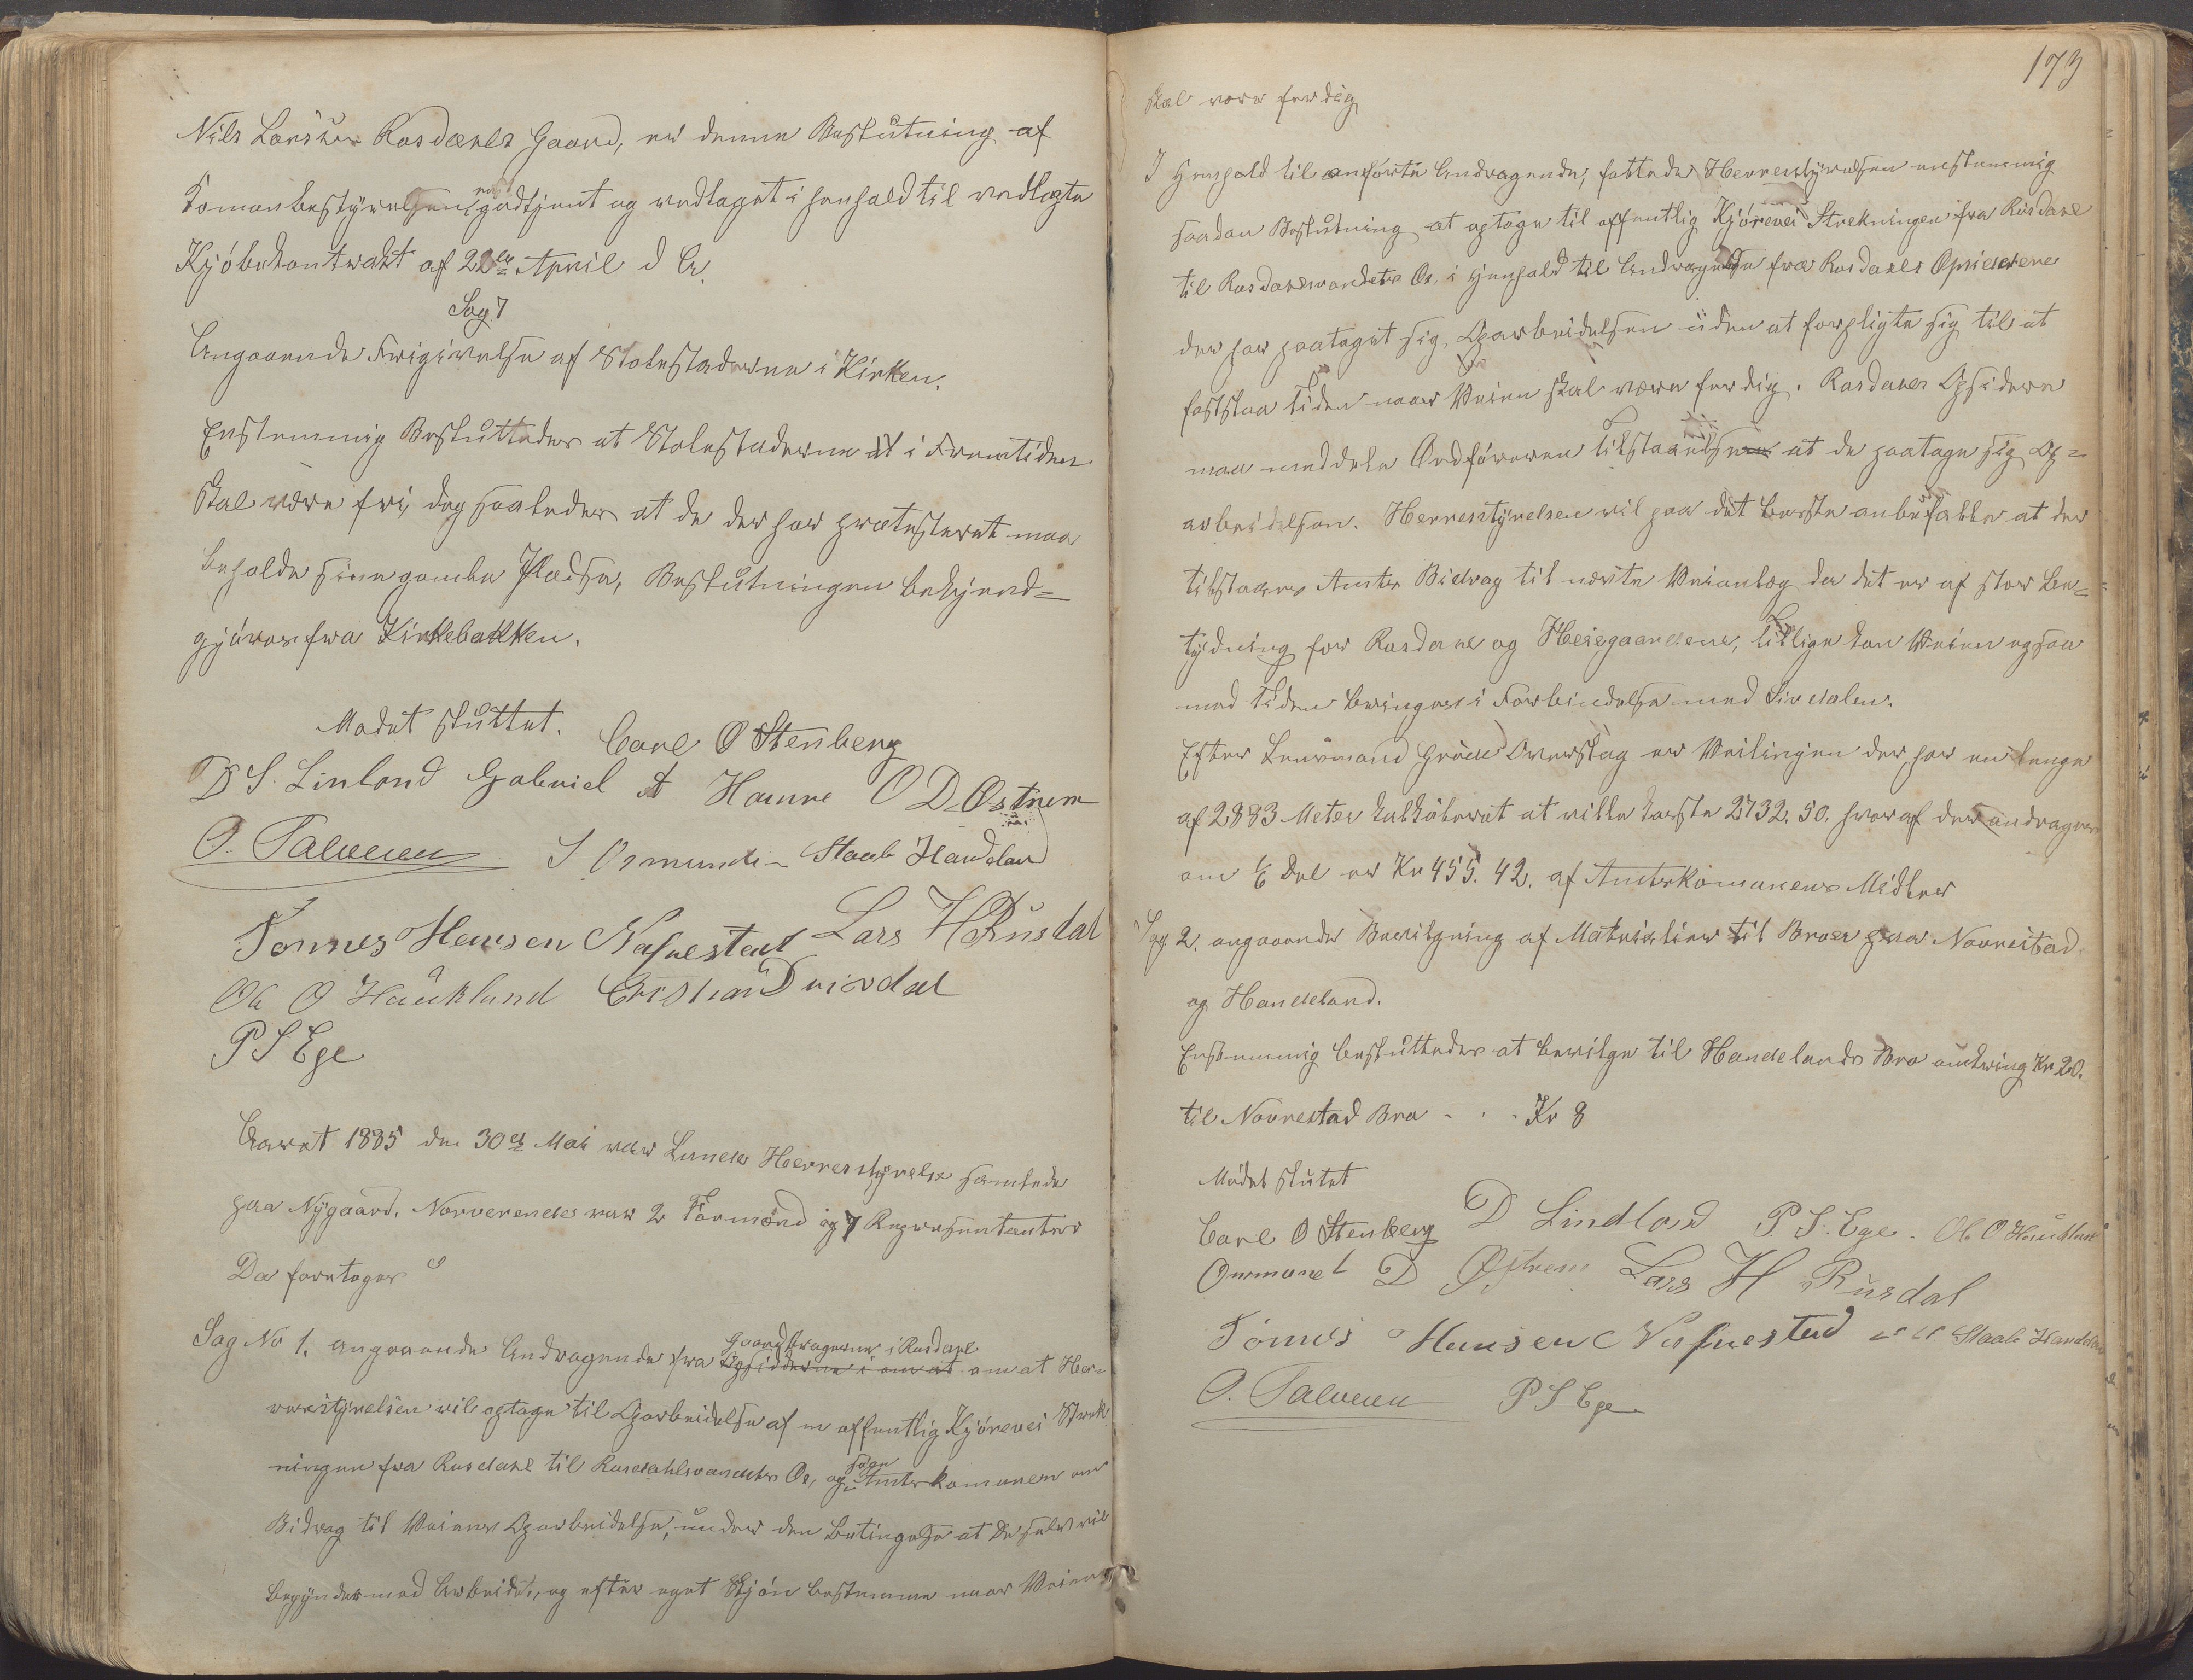 Nils Larsen Rusdahls Gaard, er denne Beslutning af
Komunbestyrelsen godkjent og vedtaget i henhold til vedlagte
Kjöbekontrakt af 22de April d A.
Sag 7
Angaaende Frigivelse af Stolestaderne i Kirken.
Enstemmig Besluttedes at Stolestaderne i Fremtiden
skal være fri, dog saaledes at de der har protesteret maa
beholde sine gamle Pladse, Beslutningen bekjend-
gjöres fra Kirkebakken.
Mødet sluttet. Carl O Stenberg
D S. Linland Gabriel A Hamre O D Østrem
O. Salvesen S Osmunds Staale Handeland
Tønnes Hansen Nafnestad Lars H Rusdal
Ole O Haukland Cristian Drivdal
P S Ege
Aaret 1885 den 30te Mai var Lunds Herresstyrelse samlede
paa Nygaard. Nerverendes var 2 Formænd og 7 Repræsentanter
Da foretoges
Sag No 1. angaaende Andragende fra Gaardbrugerne i Rusdahl om at Her-
restyrelsen vil optage til Oparbeidelse af en offentlig Kjørevei Strek-
ningen fra Rusdahl til Rusdahlsvandets Os, og söge Amtskomunen om
Bidrag til Veiens Oparbeidelse, under den Betingelse at De selv vil
begynde med Arbeidet, og efter eget Skjön bestemme naar Veien
173
skal være ferdig
I Henhold til anførte Andragende, fattedes Herresstyrelsen enstemmig
saadan Beslutning at optage til offentlig Kjörevei Strekningen fra Rusdahl
til Rusdahlsvandets Os, i Henhold til Andragende fra Rusdahls Opsiddere
der har paataget sig Oparbeidelsen uden at forpligte sig til at
fastslaa Tiden naar Veien skal være ferdig. Rusdahls Opsidere
maa meddele Ordföreren Tilstaaelse at de paatage sig Op-
arbeidelsen. Herresstyrelsen vil paa det beste anbefalle at der
tilstaaes Amts Bidrag til nevnte Veianlæg da det er af stor Be-
tydning for Rusdahl og Heiegaardene, tillige kan Veien ogsaa
med Tiden bringes i Forbindelse med Sirdalen.
Efter Lensmand Gröves Overslag er Veilingen der har en lengde
af 2883 Meter kalkuleret at ville koste 2732.50. hvoraf der andrages
om 1/6 Del er Kr 455.42. af Amtskomunens Midler
Sag 2. angaaende Bevilgning af Matrialier til Broer paa Navrestad
og Handeland.
Enstemmig besluttedes at bevilge til Handelands Bro omkring Kr 20.
til Navrestad Bro - . - Kr 8
Mödet slutet
Carl O Stenberg D Lindland P S. Ege. Ole O Haukland
Osmund D Østrem Lars H Rusdal
Tönnes Hansen Nafnestad Staale Handeland
O. Salvesen P S Ege